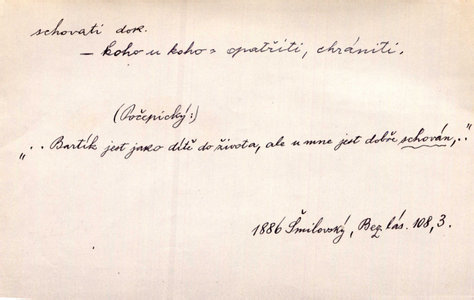 schovati dok.
– koho u koho = opatřiti, chrániti.
(Počepický:)
„.. Bartík jest jako dítě do života, ale u mne jest dobře schován,.."
1886 Šmilovský, Bez lás. 108, 3.